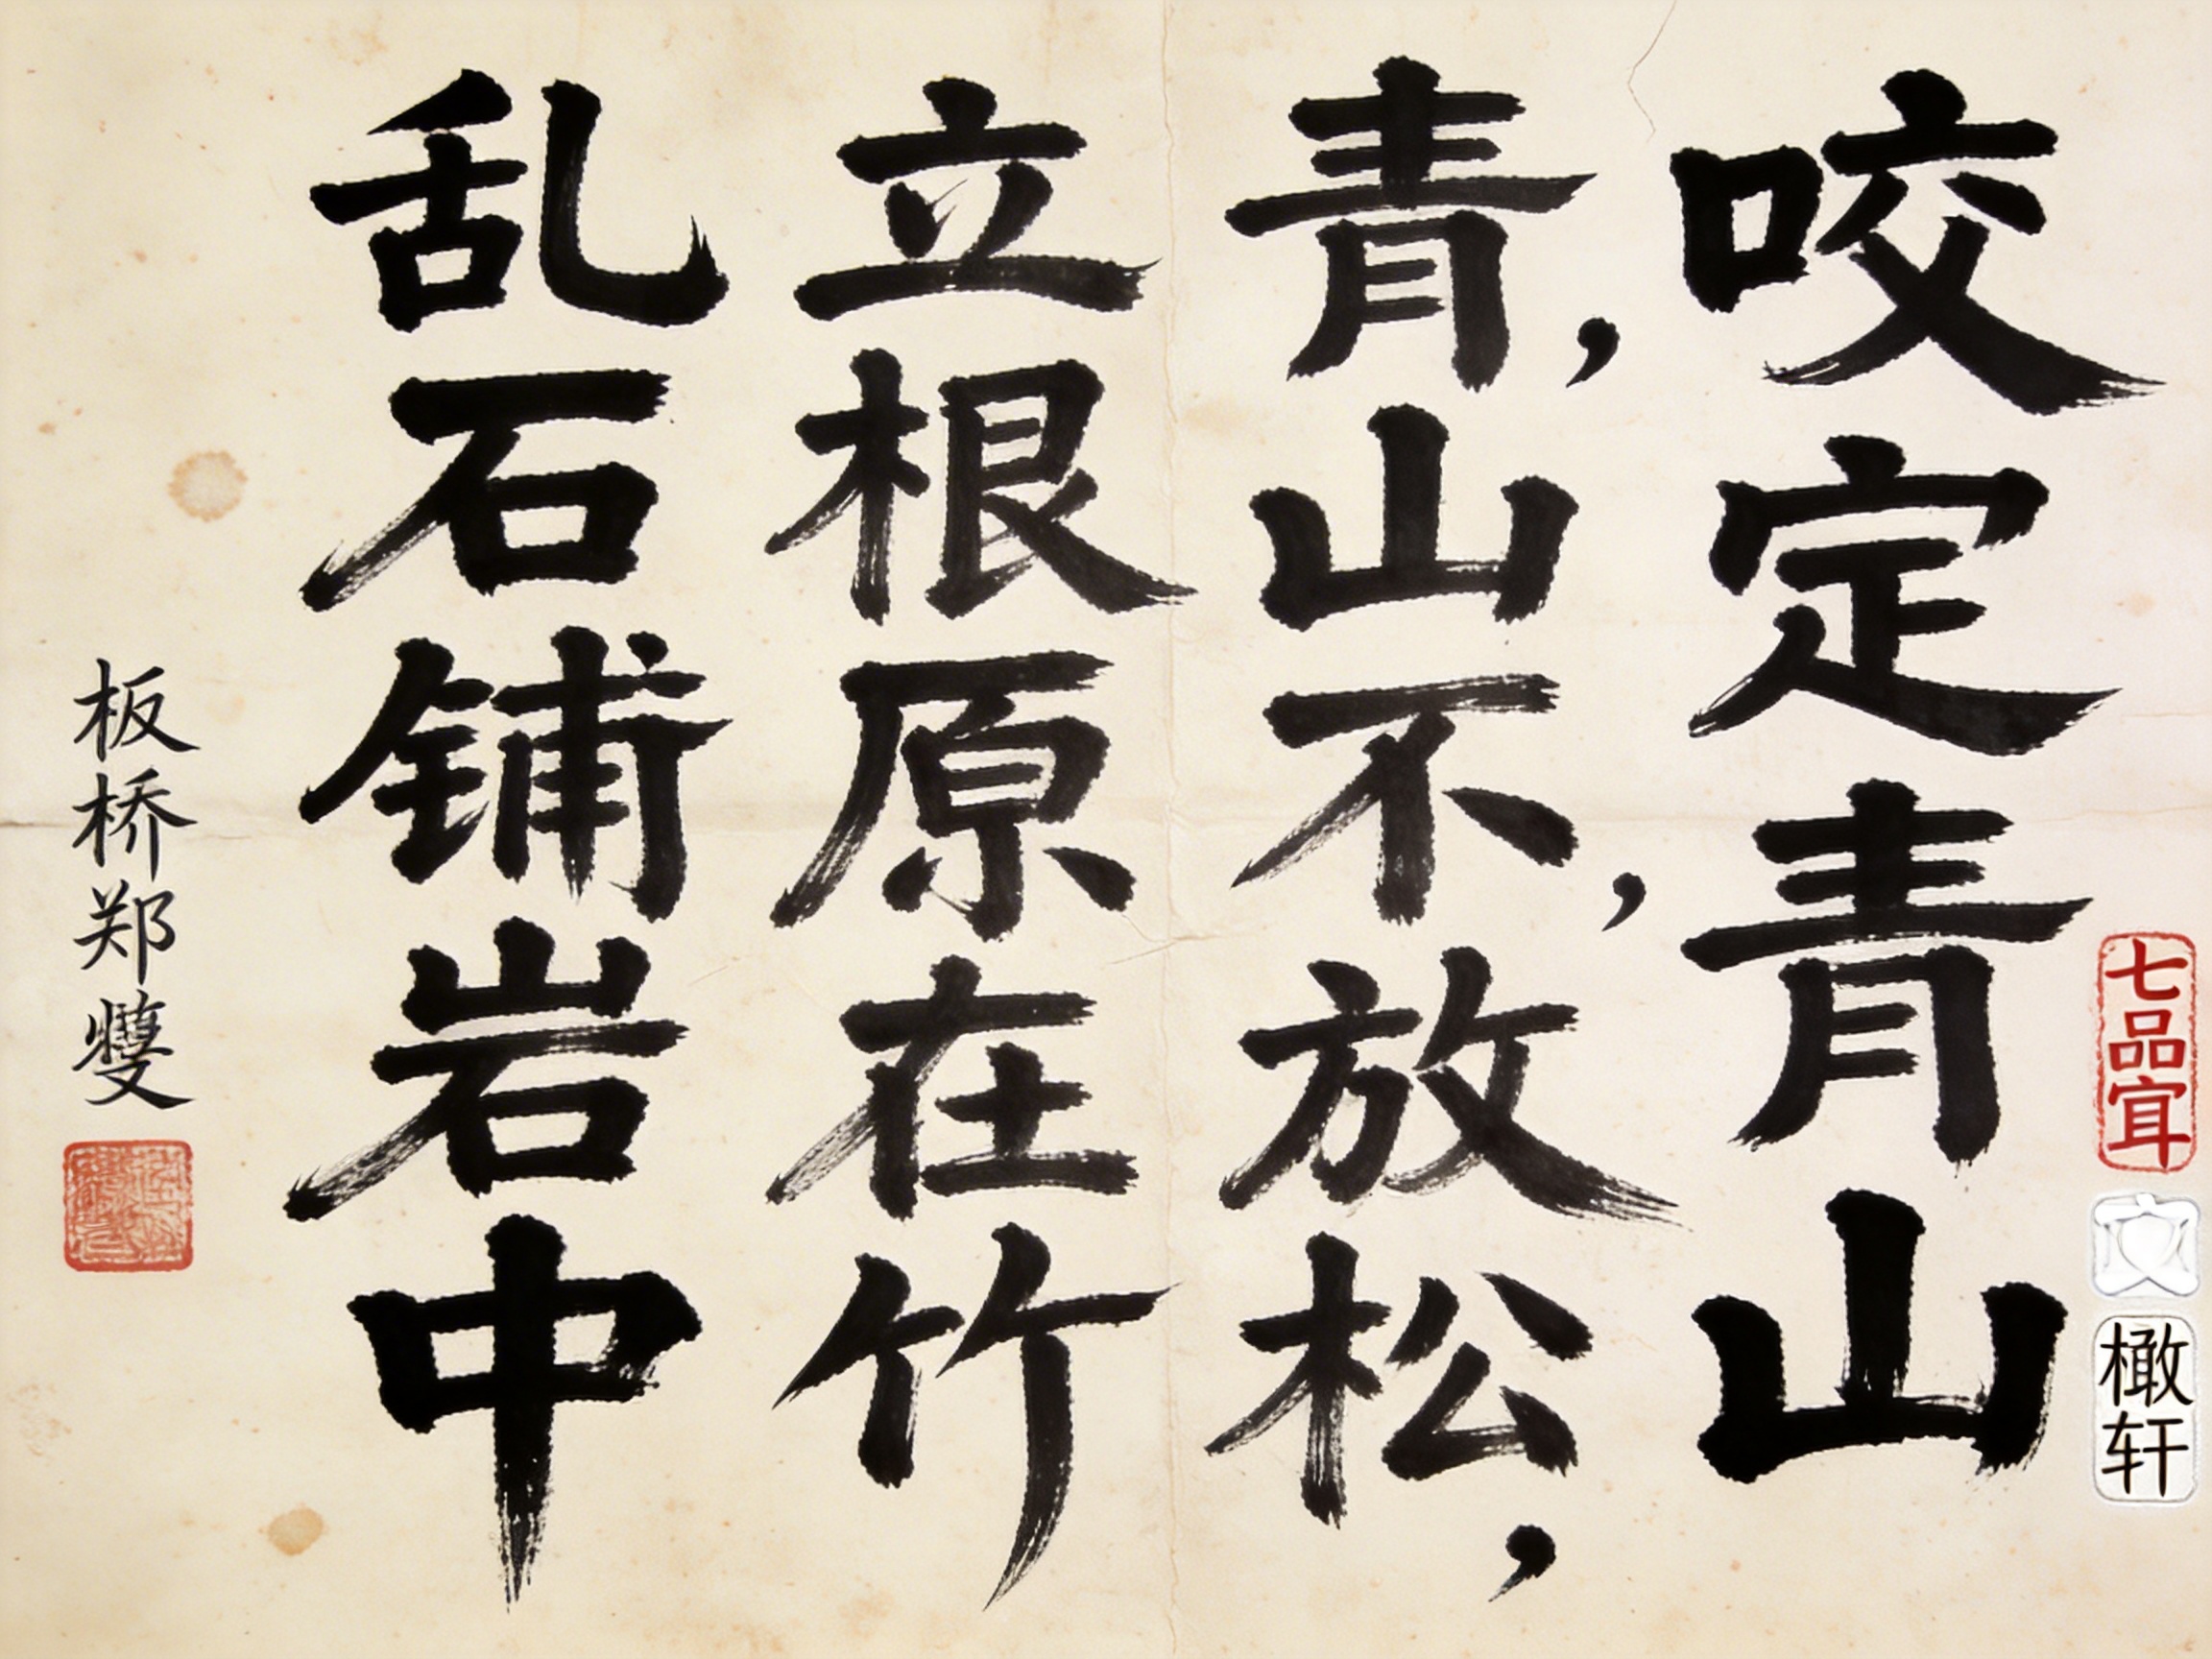 咬定青山
青，山不，放松，
立根原在竹
乱石铺岩中
板桥郑燮
七品
橄轩